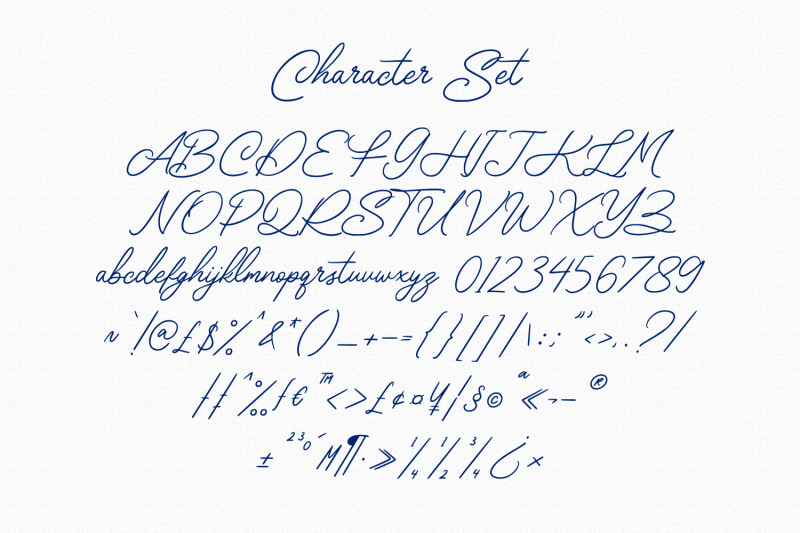 Character Set
ABCDEFGHIJKLM
NOPQRSTUVWXYZ
abcdefghijklmnopqrstuvwxyz 0123456789
~`!@£$%^&*()_+-={}[]|\:;"'<>,.?/
†‡ˆ‰ƒ€™<>£¢¤¥¦§©ª«¬—®
±²³°´µ¶·»¼½¾¿×